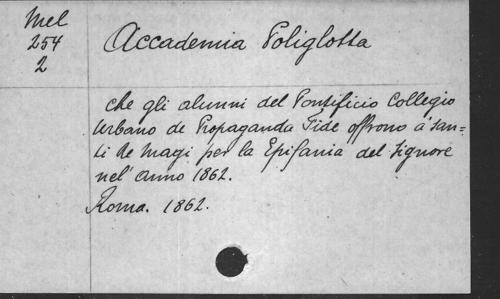 Mel
254
2
Accademia Poliglotta
che gli alunni del Pontificio Collegio
Urbano de Propaganda Fide offrono a' San=
ti Re Magi per la Epifania del Signore
nel' anno 1862.
Roma. 1862.